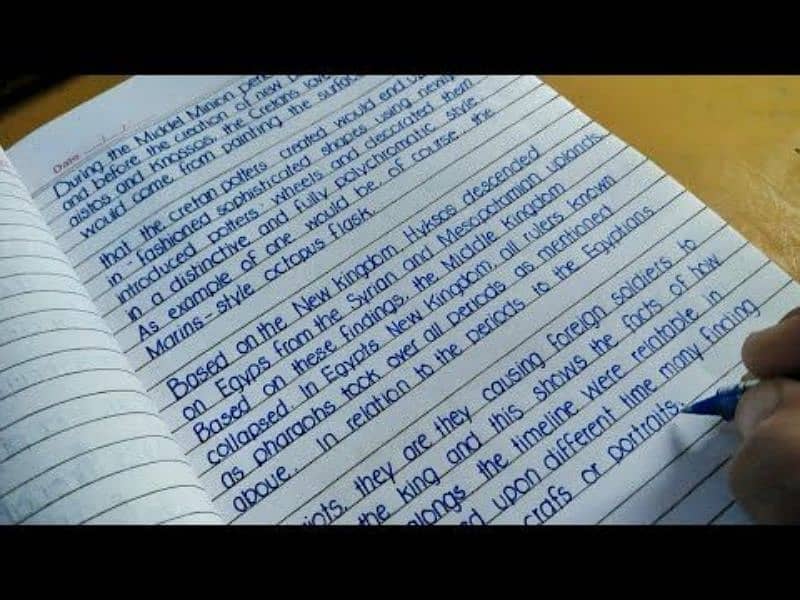 Date
During the Middel Minion
and before the creation of new
aistos and Knossos, the Cretans
would come from painting the surfac
that the cretan potters created would end
in-fashioned sophisticated shapes using newly
introduced potters' wheels and decorated them
in a distinctive and fully polychromatic style
As example of one would be, of course, the
Marins-style octopus flask.
Based on the New Kingdom, Hyksos descended
on Egyps from the Syrian and Mesopotamian uplands
Based on these findings, the Middle Kingdom
collapsed In Egypts New Kingdom, all rulers known
as pharaohs took over all periods as mentioned
above.. In relation to the periods to the Egyptians
iots, they are they causing foreign soldiers to
the king and this shows the facts of how
alongs the timeline were relatable in
ed upon different time many finding
crafs or portraits.